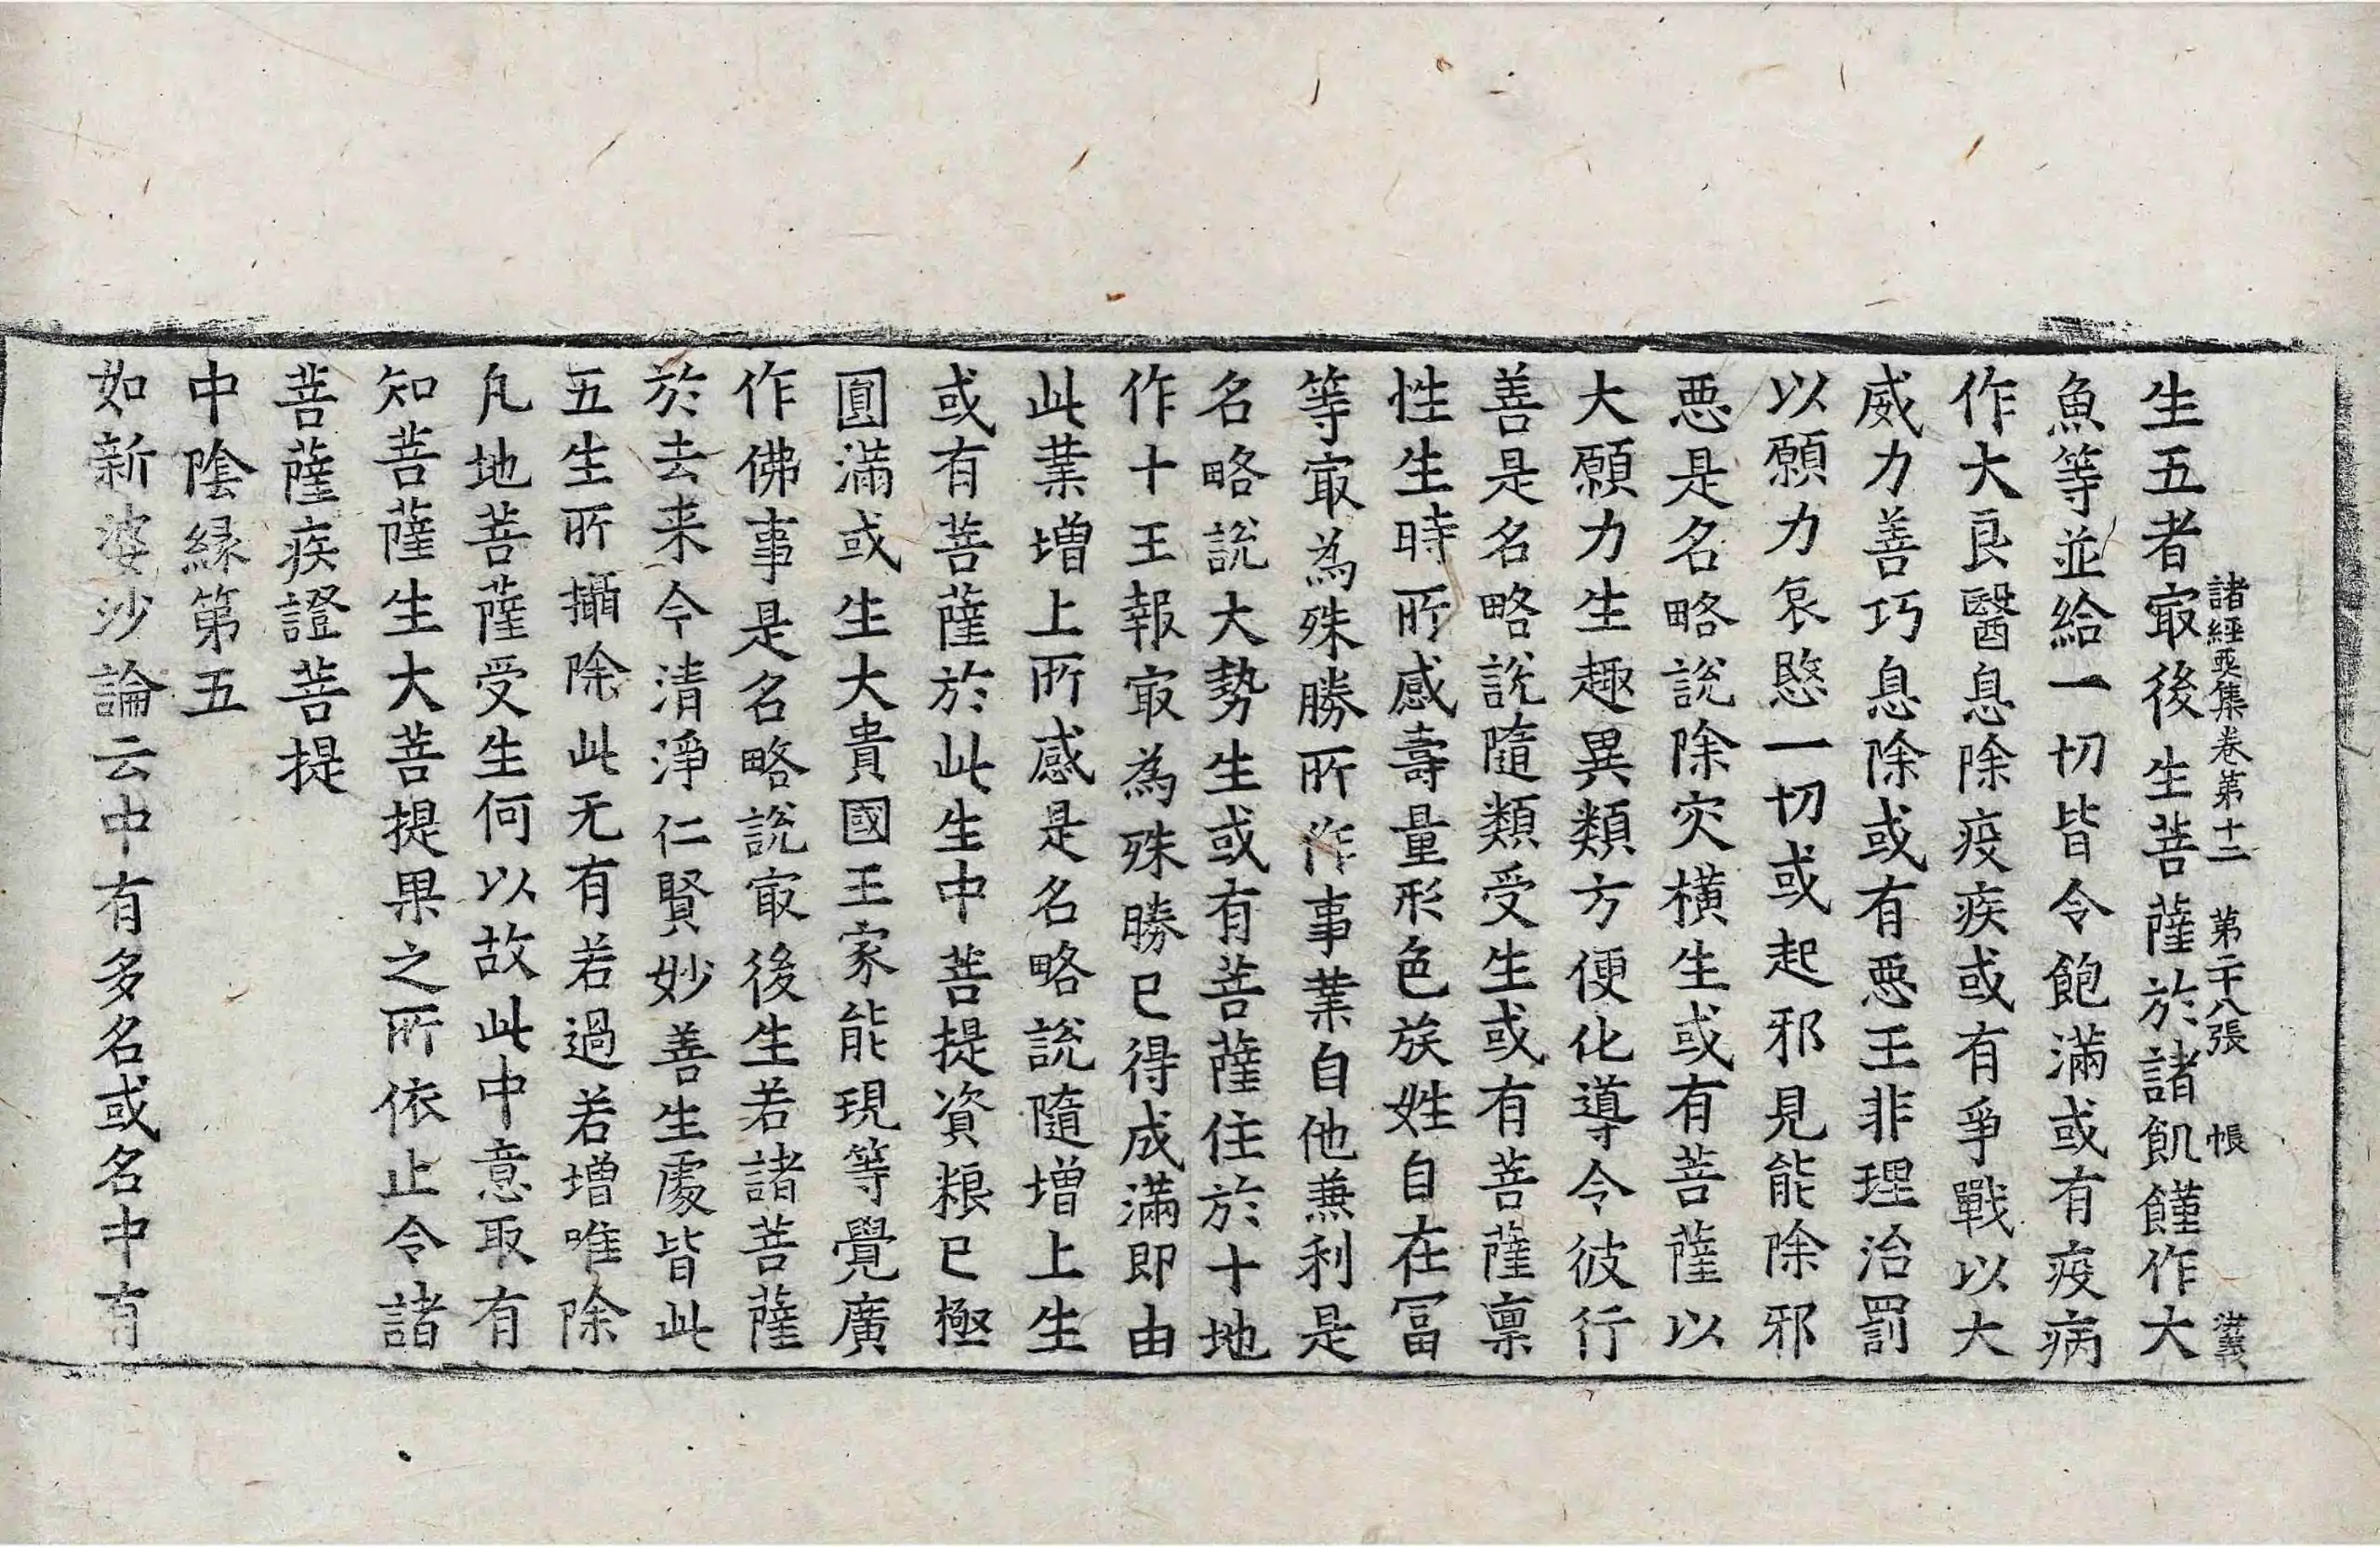 諸經要集卷第十二 第二十八張 帳 洪義
生五者㝡後生菩薩於諸飢饉作大
魚等並給一切皆令飽滿或有疫病
作大良醫息除疫疾或有爭戰以大
威力善巧息除或有惡王非理治罰
以願力哀愍一切或起邪見能除邪
惡是名略說除灾橫生或有菩薩以
大願力生趣異類方便化導令彼行
善是名略說隨類受生或有菩薩禀
性生時所感壽量形色族姓自在冨
等㝡為殊勝所作事業自他兼利是
名略說大勢生或有菩薩住於十地
作十王報㝡為殊勝已得成滿即由
此業增上所感是名略說隨增上生
或有菩薩於此生中菩提資粮已極
圓滿或生大貴國王家能現等覺廣
作佛事是名略說㝡後生若諸菩薩
於去来今清淨仁賢妙善生處皆此
五生所攝除此无有若過若增唯除
凡地菩薩受生何以故此中意取有
知菩薩生大菩提果之所依止令諸
菩薩疾證菩提
中陰緣第五
如新婆沙論云中有多名或名中有